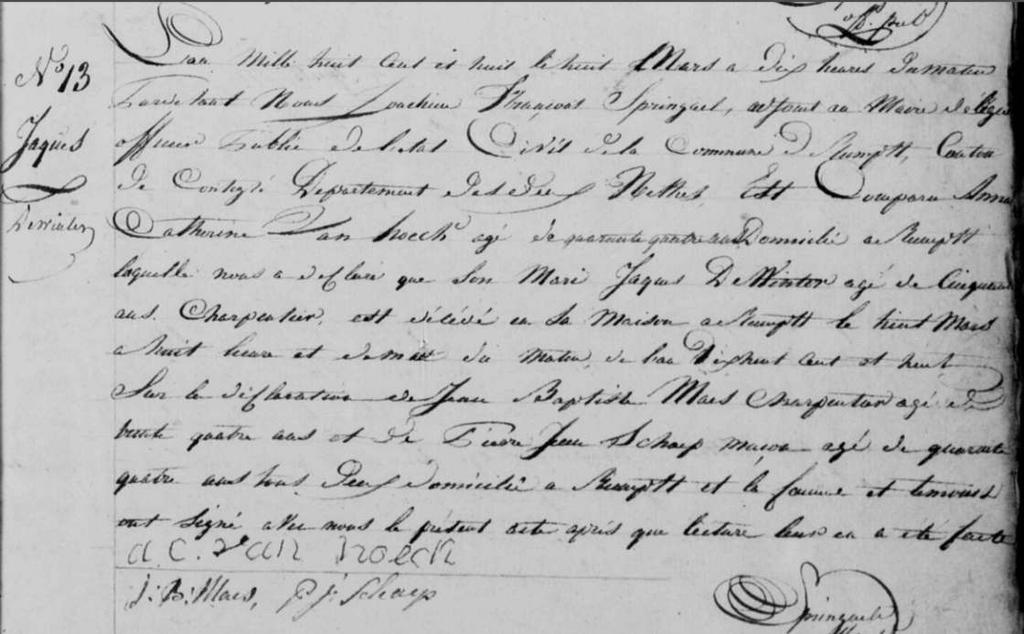 N° 13
Jaques
Dewinter
L'an Mille huit Cent et huit le huit Mars a dix heures du matin
Pardevant Nous Joachim François Springael, adjoint au Maire
officier Public de l'etat Civil de la Commune de Rumptt, Canton
de Contigé Departement des deux Nethes, Est Comparu Anna
Catherine Van hoeck agé de quarante quatre ans Domicilié a Rumptt
laquelle nous a declaré que Son Mari Jaques DeWinter agé de Cinquante
ans Charpentier, est décédé en Sa Maison a Rumptt le huit Mars
a huit heure et demie du Matin de l'an Dixhuit Cent et huit
Sur la déclaration de Jean Baptiste Maes Charpentier agé de
trente quatre ans et de Pierre Jean Schaep macon agé de quarante
quatre ans tous Deux domicilié a Rumptt et la femme et temoins
ont Signé avec nous le présent acte après que lecture leur en a été faite
A.C. Van hoeck
J: B: Maes, P J: Schaep
Springael